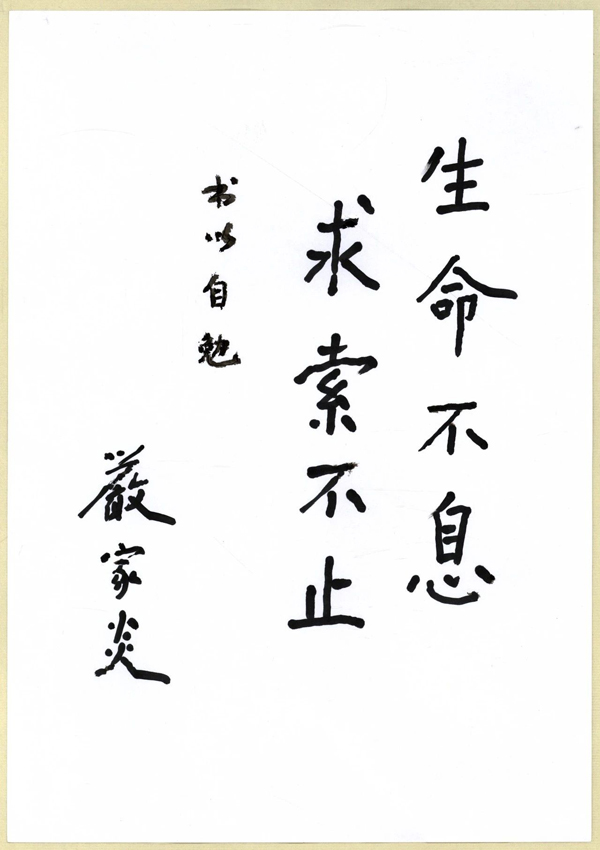 生命不息
求索不止
书以自勉
严家炎